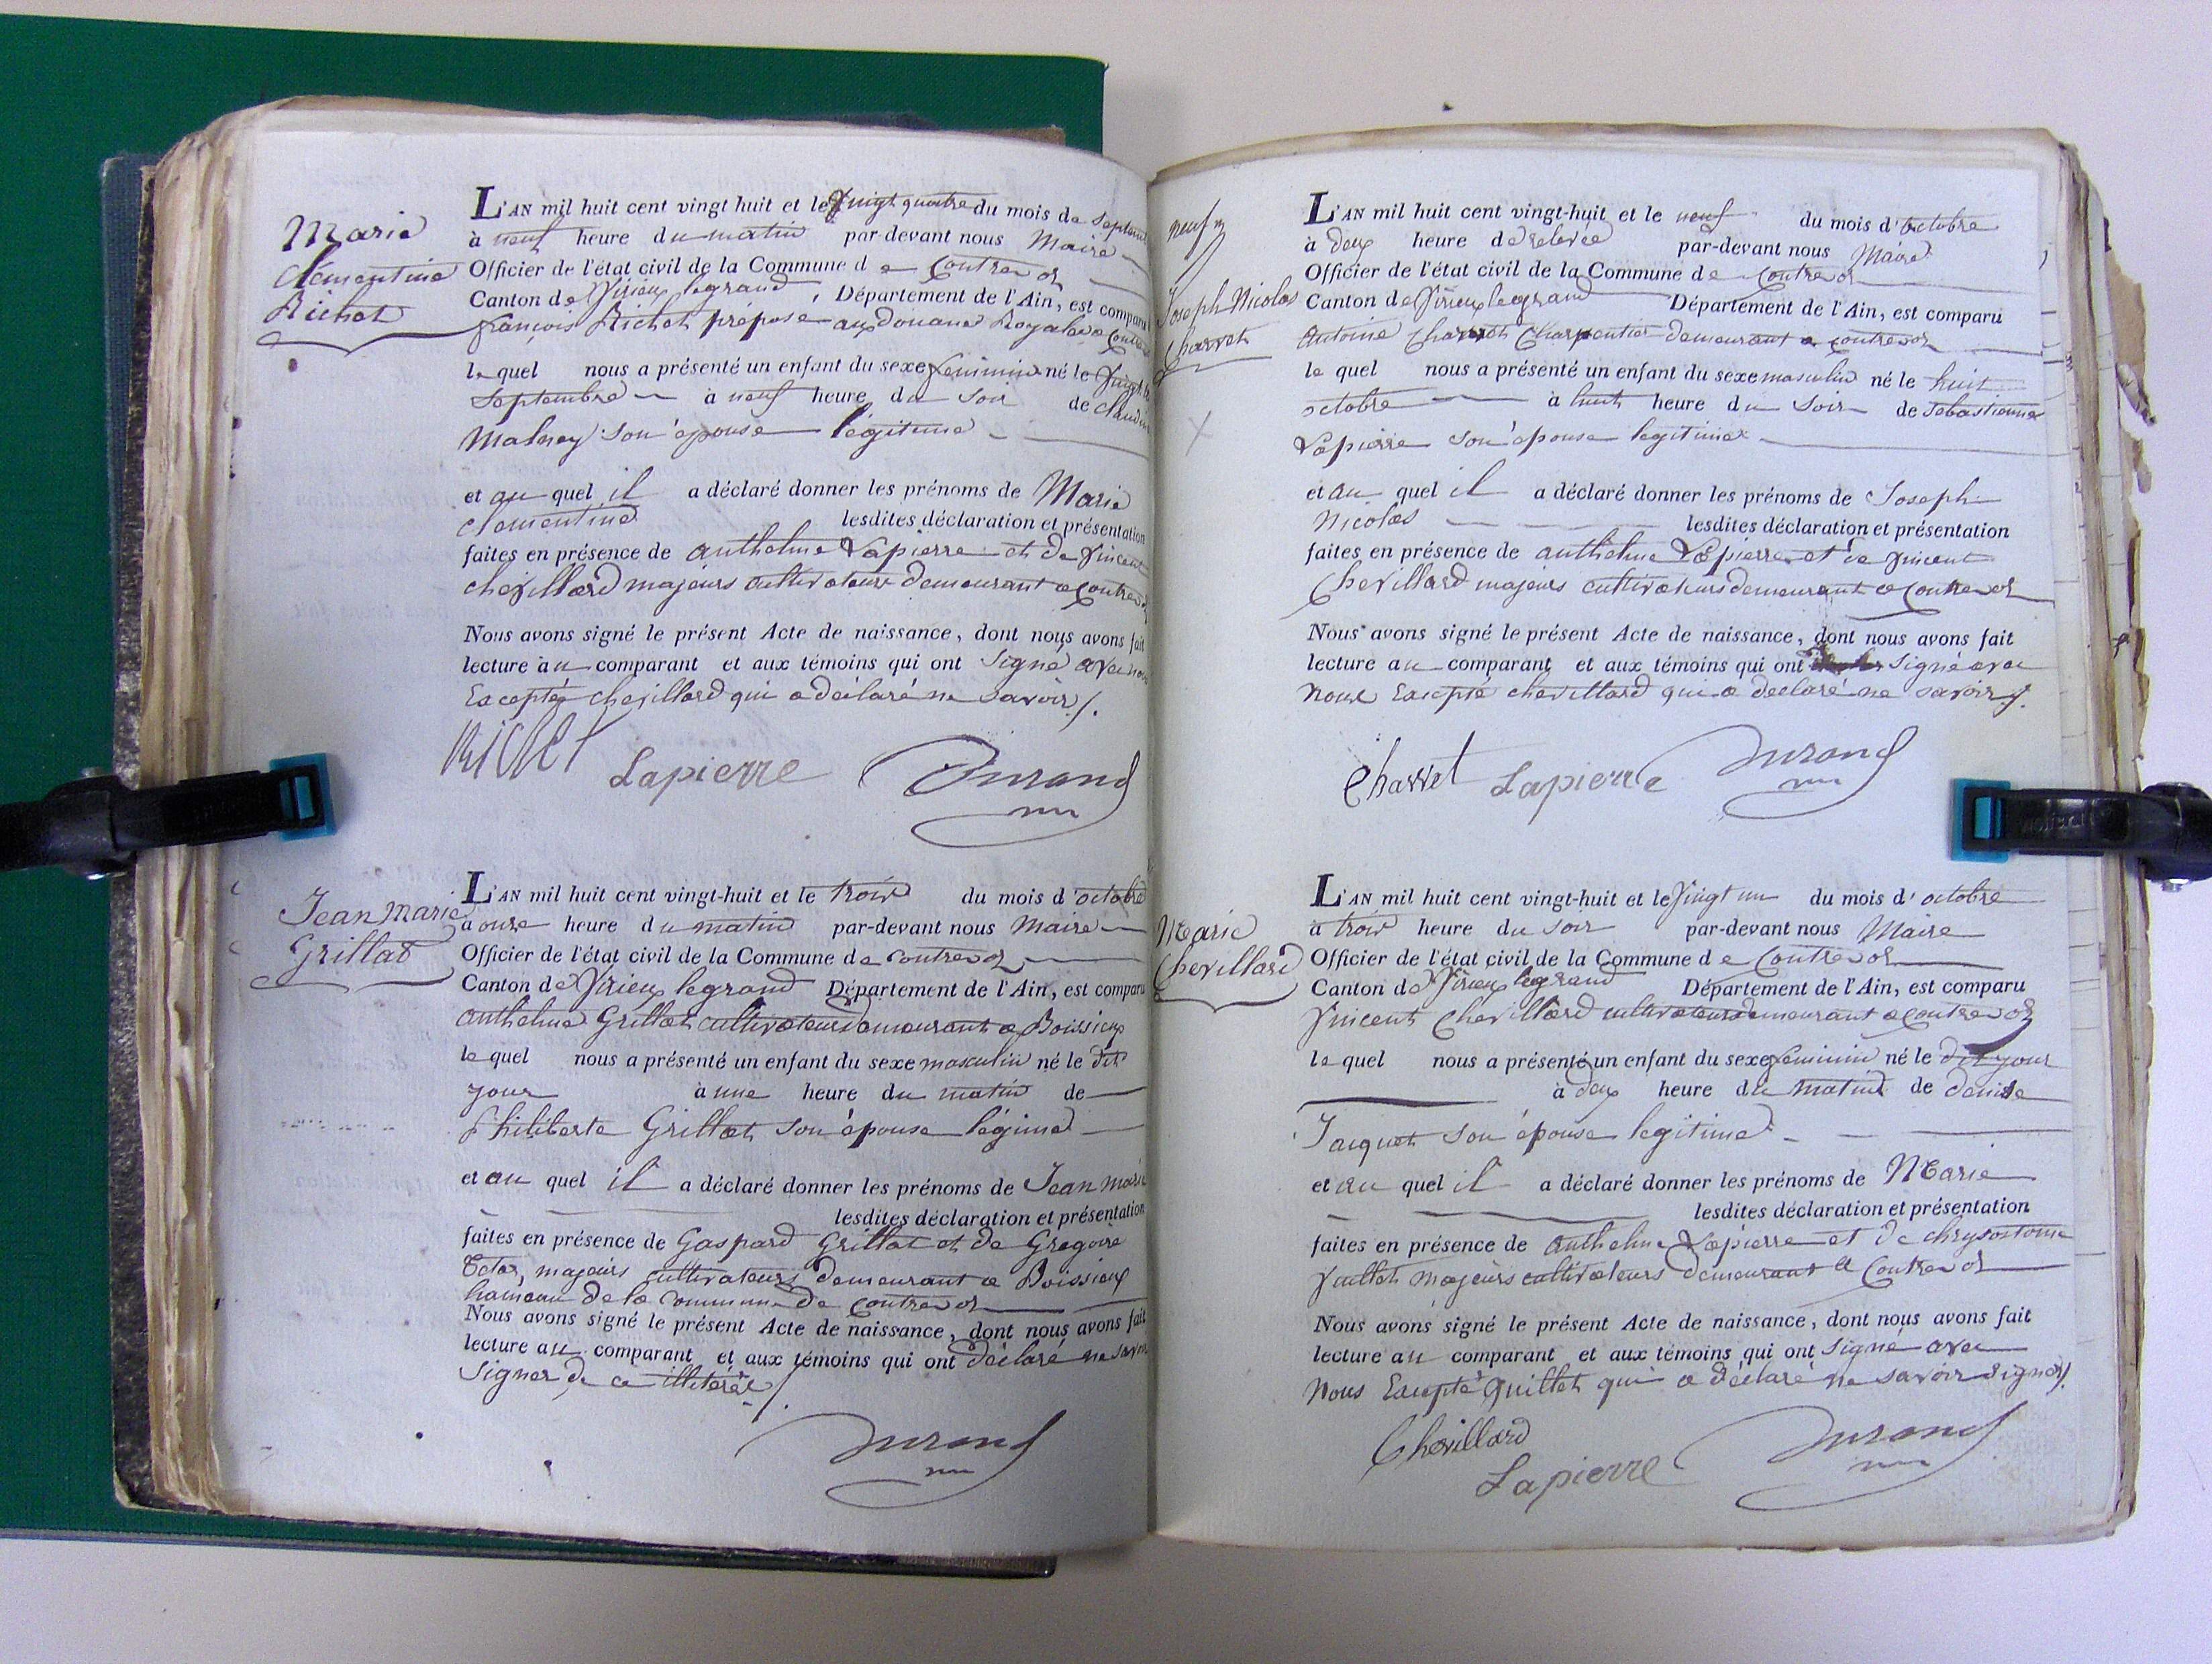 Marie
clémentine
Richet
L'AN mil huit cent vingt huit et le Vingt quatre du mois de Septem
à neuf heure du matin par-devant nous Maire
Officier de l'état civil de la Commune de Contrevoz
Canton de Virieu legrand, Département de l'Ain, est comparu
françois Richet préposé aux douanes Royales a Contre
le quel nous a présenté un enfant du sexe feminin né le Vingt
Septembre à neuf heure du Soir de claudin
son épouse légitime
et au quel il a déclaré donner les prénoms de Marie
clementine lesdites déclaration et présentation
faites en présence de anthelme Lapierre et de Vincent
chevillard majeurs cultivateurs demeurant a Contrevoz
Nous avons signé le présent Acte de naissance, dont nous avons fait
lecture au comparant et aux témoins qui ont Signé avec nous
Excepté chevillard qui a déclaré ne savoir /.
RICHET Lapierre Durand
Jean marie
Grillat
L'AN mil huit cent vingt-huit et le trois du mois d'octobre
à onze heure du matin par-devant nous Maire
Officier de l'état civil de la Commune de Contrevoz
Canton de Virieu legrand Département de l'Ain, est comparu
anthelme Grillat cultivateur demeurant a Boissieux
le quel nous a présenté un enfant du sexe masculin né le dit
jour à une heure du matin de
Philiberte Grillat son épouse légime
et au quel il a déclaré donner les prénoms de Jean marie
lesdites déclaration et présentation
faites en présence de Gaspard Grillat et de Gregoire
majeurs cultivateurs demeurant a Boissieux
hameau de la Commune de Contrevoz
Nous avons signé le présent Acte de naissance, dont nous avons fait
lecture au comparant et aux témoins qui ont déclaré ne savoir
Signer de ce illiterés /.
Durand
neuf
Joseph Nicolas
Charvet
L'AN mil huit cent vingt-huit et le neuf du mois d'octobre
à deux heure de relevée par-devant nous Maire
Officier de l'état civil de la Commune de Contrevoz
Canton de Virieu legrand Département de l'Ain, est comparu
Antoine Charvet Charpentier demeurant a Contrevoz
le quel nous a présenté un enfant du sexe masculin né le huit
octobre à huit heure du Soir de Sebastienne
Lapierre son épouse legitime
et au quel il a déclaré donner les prénoms de Joseph
Nicolas lesdites déclaration et présentation
faites en présence de anthelme Lapierre et de Vincent
Chevillard majeurs cultivateurs demeurant a Contrevoz
Nous avons signé le présent Acte de naissance, dont nous avons fait
lecture au comparant et aux témoins qui ont Signé avec
nous Excepté chevillard qui a déclaré ne savoir /.
Charvet Lapierre Durand
Marie
Chevillard
L'AN mil huit cent vingt-huit et le Vingt un du mois d'octobre
à trois heure du Soir par-devant nous Maire
Officier de l'état civil de la Commune de Contrevoz
Canton de Virieu legrand Département de l'Ain, est comparu
Vincent Chevillard cultivateur demeurant a Contrevoz
le quel nous a présenté un enfant du sexe feminin né le dit jour
à deux heure du matin de denise
Jacquet son épouse legitime
et au quel il a déclaré donner les prénoms de Marie
lesdites déclaration et présentation
faites en présence de anthelme Lapierre et de chrysostome
majeurs cultivateurs demeurant a Contrevoz
Nous avons signé le présent Acte de naissance, dont nous avons fait
lecture au comparant et aux témoins qui ont Signé avec
Nous Excepté qui a déclaré ne savoir Signer /.
Chevillard
Lapierre Durand